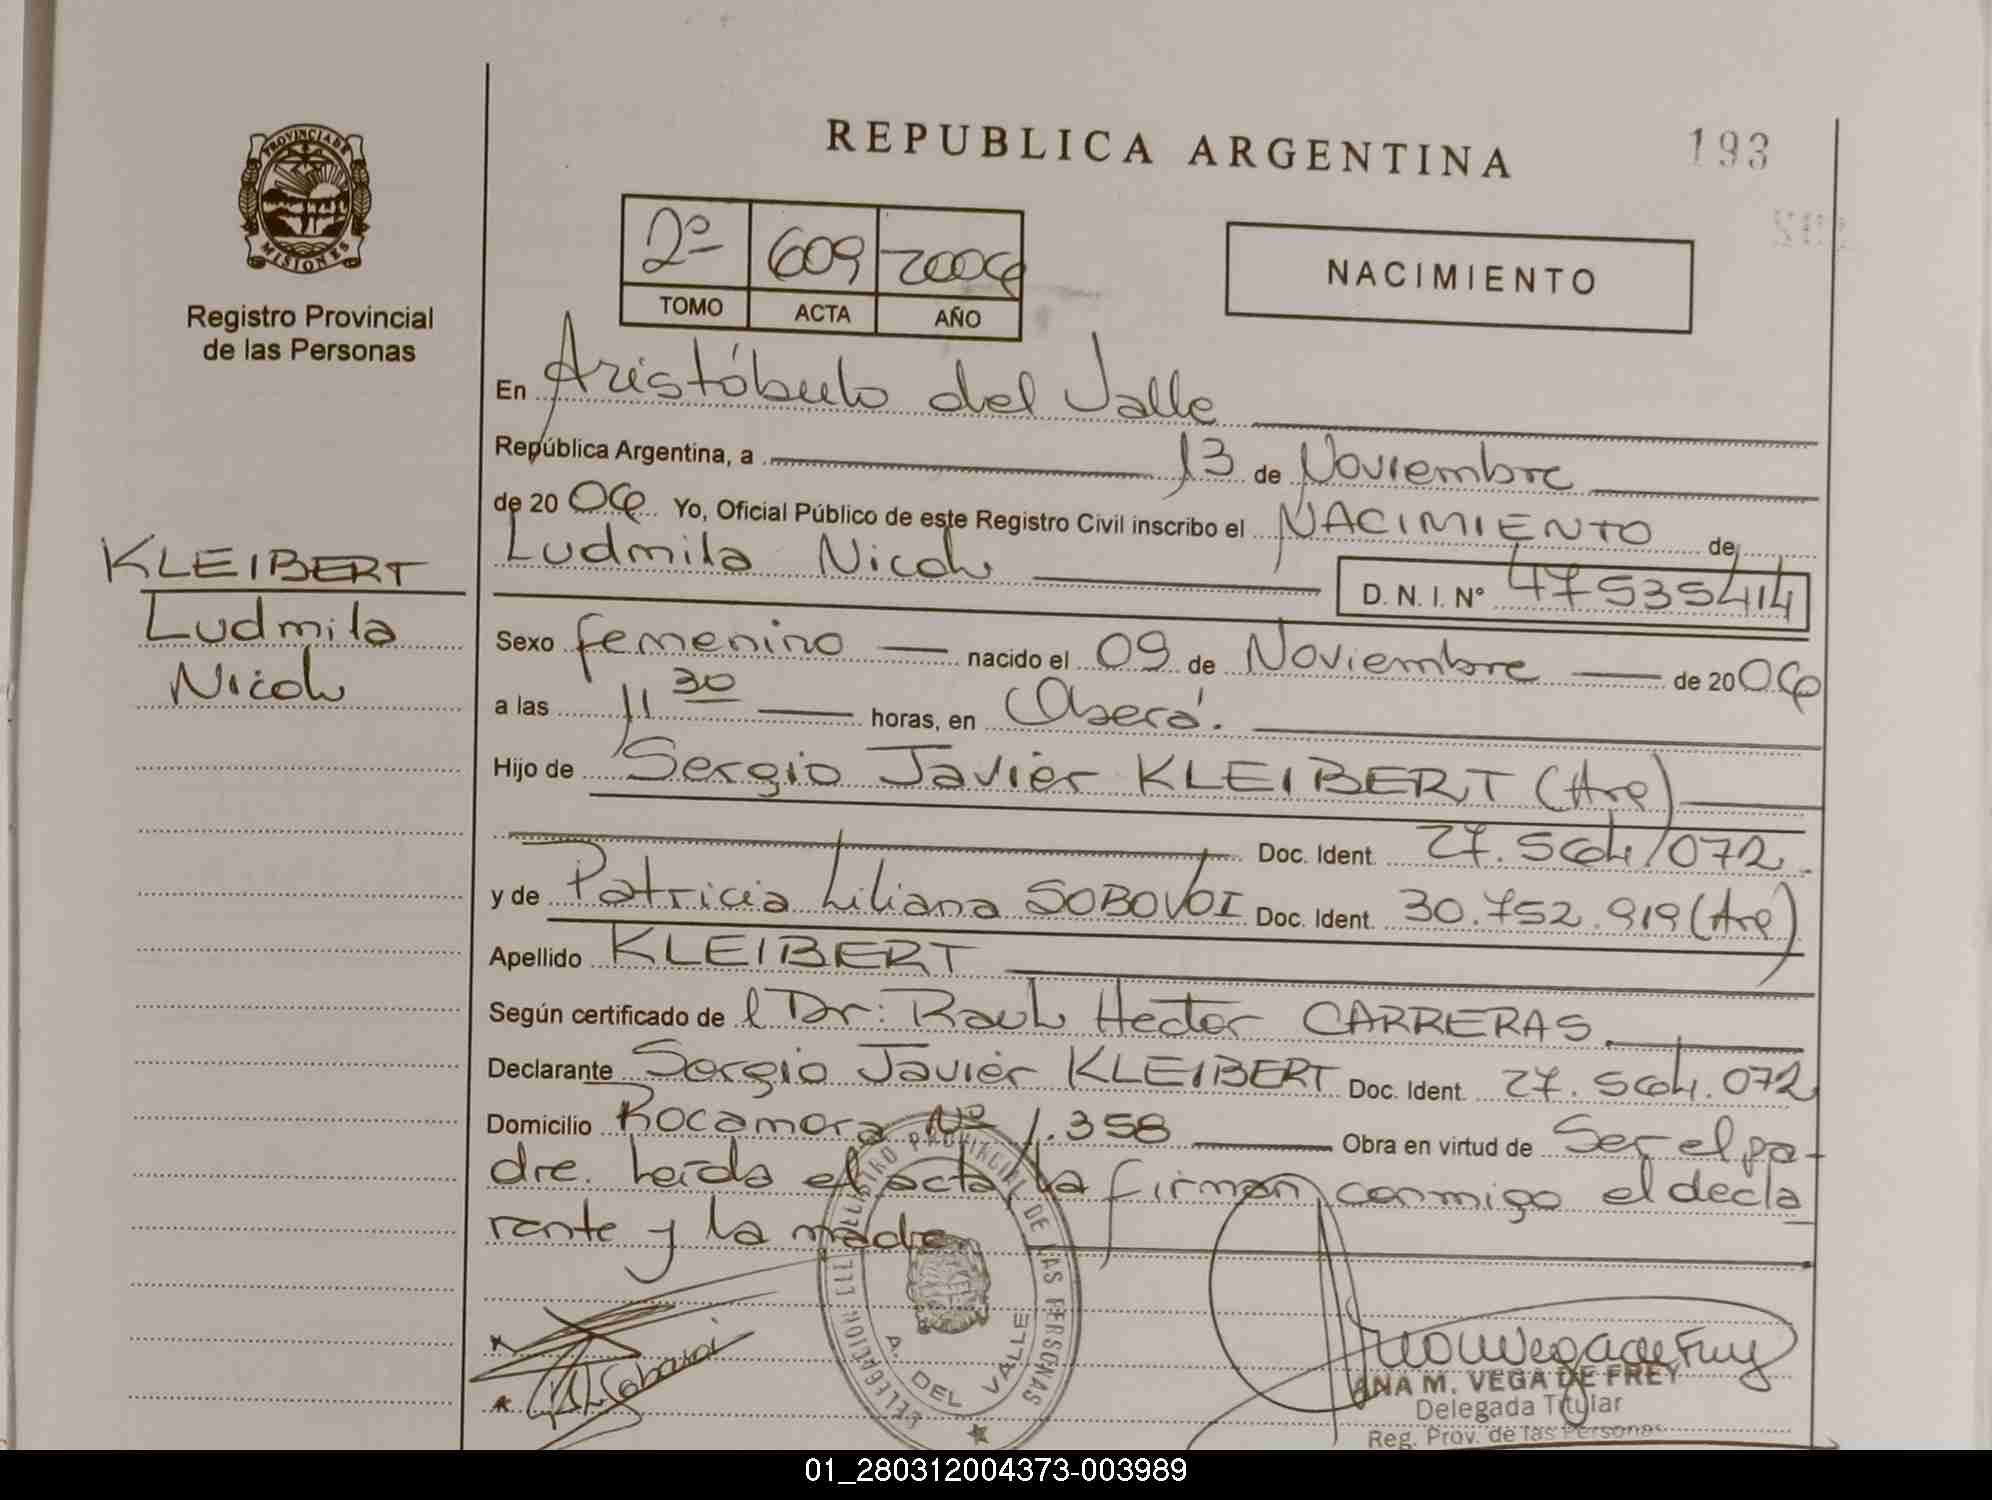 REPUBLICA ARGENTINA
193
PROVINCIA DE
MISIONES
Registro Provincial
de las Personas
2º 609 2006
TOMO ACTA AÑO
NACIMIENTO
En Aristóbulo del Valle
República Argentina, a 13 de Noviembre
de 2006 Yo, Oficial Público de este Registro Civil inscribo el NACIMIENTO de
Ludmila Nicole
D. N. I. Nº 47535414
KLEIBERT
Ludmila
Nicole
Sexo femenino nacido el 09 de Noviembre de 2006
a las 11 30 horas, en Oberá.
Hijo de Sergio Javier KLEIBERT (Arg)
Doc. Ident. 27.564.072
y de Patricia Liliana SOBOVOI Doc. Ident. 30.752.919 (Arg)
Apellido KLEIBERT
Según certificado de l Dr: Raul Hector CARRERAS
Declarante Sergio Javier KLEIBERT Doc. Ident. 27.564.072
Domicilio Rocamora Nº 1.358 Obra en virtud de Ser el pa-
dre. Leída el acta, la firman conmigo el decla
rante y la madre
REGISTRO PROVINCIAL DE LAS PERSONAS
DELEGACION
A. DEL VALLE
ANA M. VEGA DE FREY
Delegada Titular
Reg. Prov. de las Personas
01_280312004373-003989